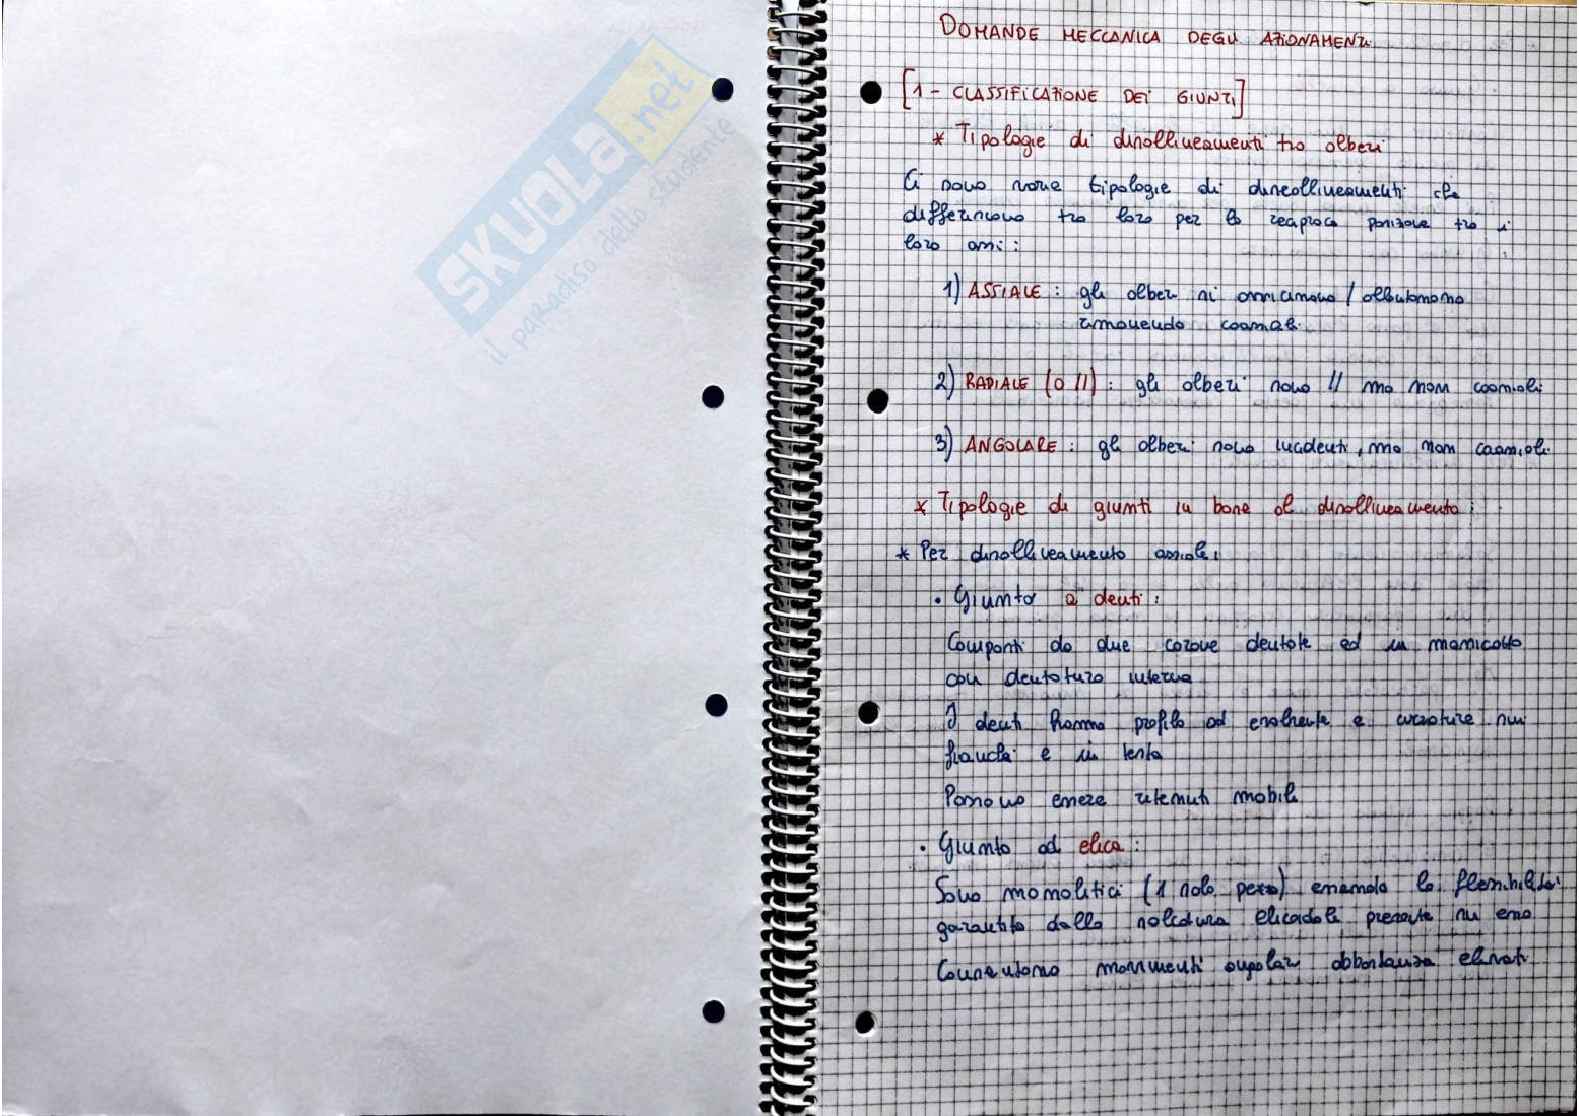 SKUOLA.net
il paradiso dello studente
DOMANDE MECCANICA DEGLI AZIONAMENTI
[1 - CLASSIFICAZIONE DEI GIUNTI]
* Tipologie di disallineamenti tra alberi
Ci sono varie tipologie di disallineamenti che
differiscono tra loro per la reciproca posizione tra i
loro assi:
1) ASSIALE : gli alberi si avvicinano / allontanano
rimanendo coassiali
2) RADIALE (O //) : gli alberi sono // ma non coassiali
3) ANGOLARE : gli alberi sono incidenti, ma non coassiali
* Tipologie di giunti in base al disallineamento :
* Per disallineamento assiale:
• Giunto a denti :
Composti da due corone dentate ed un manicotto
con dentatura interna
I denti hanno profilo ad evolvente e curvature sui
fianchi e in testa
Possono essere ritenuti mobili
• Giunto ad elica :
Sono monolitici (1 solo pezzo) essendo la flessibilità
garantita dalla solcatura elicoidale presente su esso
Consentono movimenti angolari abbastanza elevati